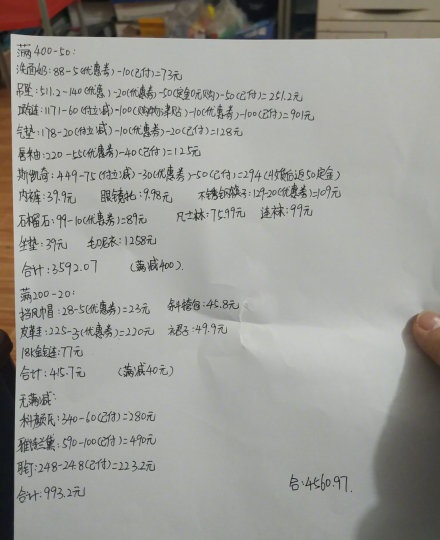 满400-50:
洗面奶:88-5(优惠券)-10(已付)=73元
吊坠:511.2-140(优惠)-20(优惠券)-50(定金0元购)-50(已付)=251.2元
项链:1171-60(付立减)-100(购物津贴)-10(优惠券)-100(已付)=901元
气垫:178-20(付立减)-10(优惠券)-20(已付)=128元
唇釉:220-55(优惠券)-40(已付)=125元
斯凯奇:449-75(付立减)-30(优惠券)-50(已付)=294(付婚后返50定金)
内裤:39.9元 眼镜托:9.98元 不锈钢筷子:129-20(优惠券)=109元
石榴石:99-10(优惠券)=89元 凡士林:75.99元 连袜:99元
坐垫:39元 毛呢衣:1258元
合计:3592.07 (满减400)
满200-20:
挡风巾帽:28-5(优惠券)=23元 斜挎包:45.8元
皮鞋:225-3(优惠券)=220元 :49.9元
18k金链:77元
合计:415.7元 (满减40元)
无满减:
科颜氏:340-60(已付)=280元
雅诗兰黛:590-100(已付)=490元
耳钉:248-24.8(已付)=223.2元
合计:993.2元
合:4560.97.